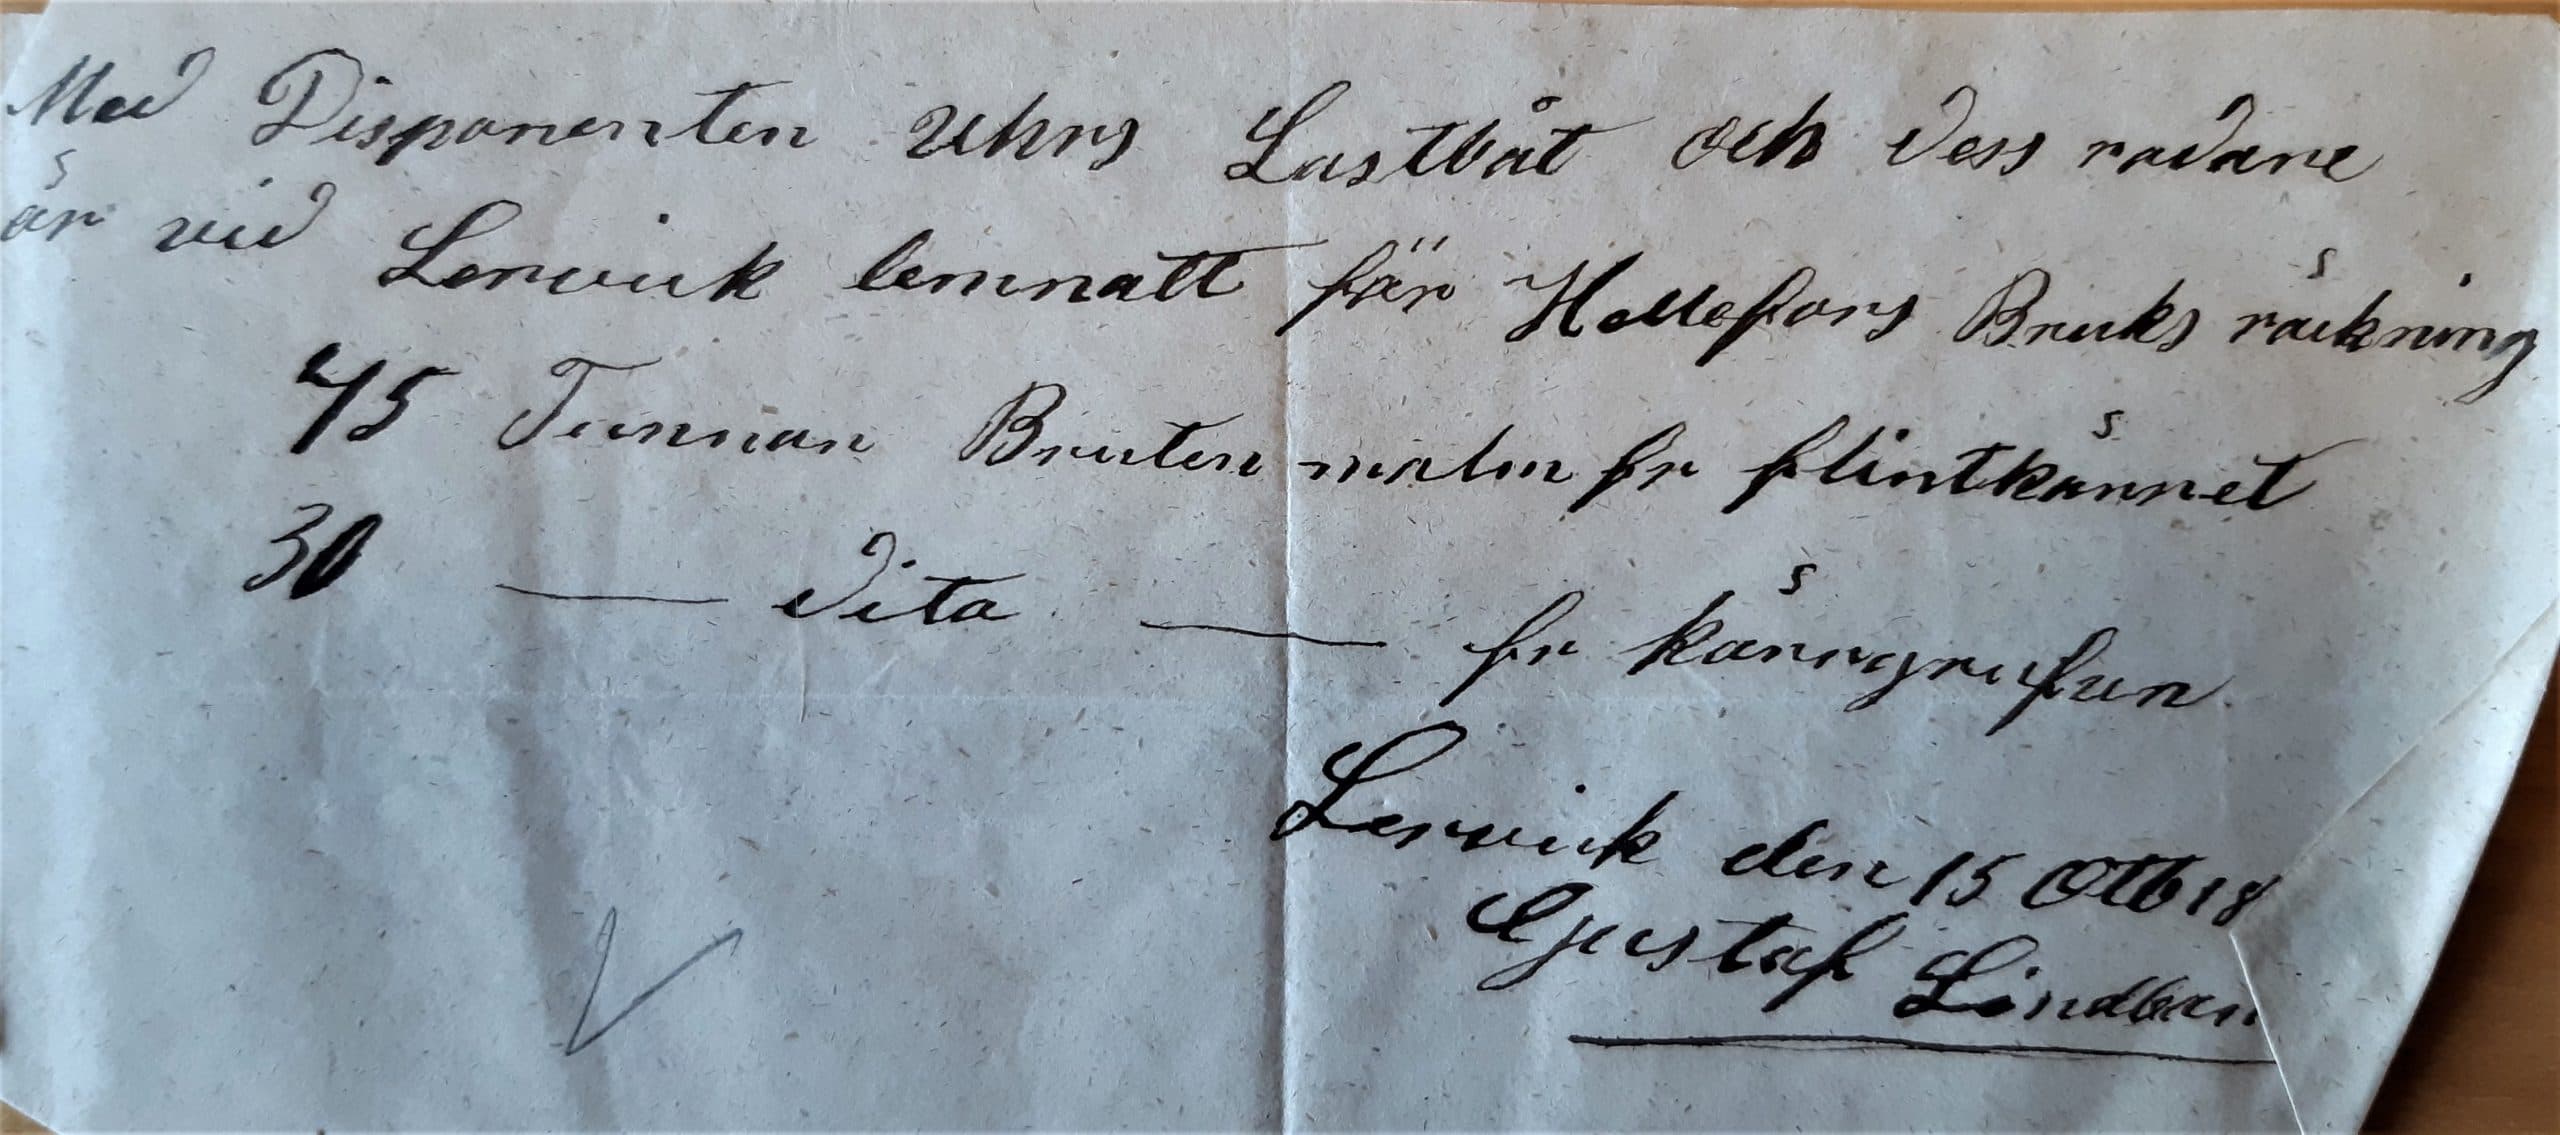 Med Disponenten Uhrs Lastbåt och dess rodare
är vid Lerwiik lemnatt för Hellefors Bruks räkning
45 Tunnor Bruten malm fr flintkärnet
30 — dito — fr kärngrufvan
Lerwiik den 15 Otb 18
Gustaf Lindber